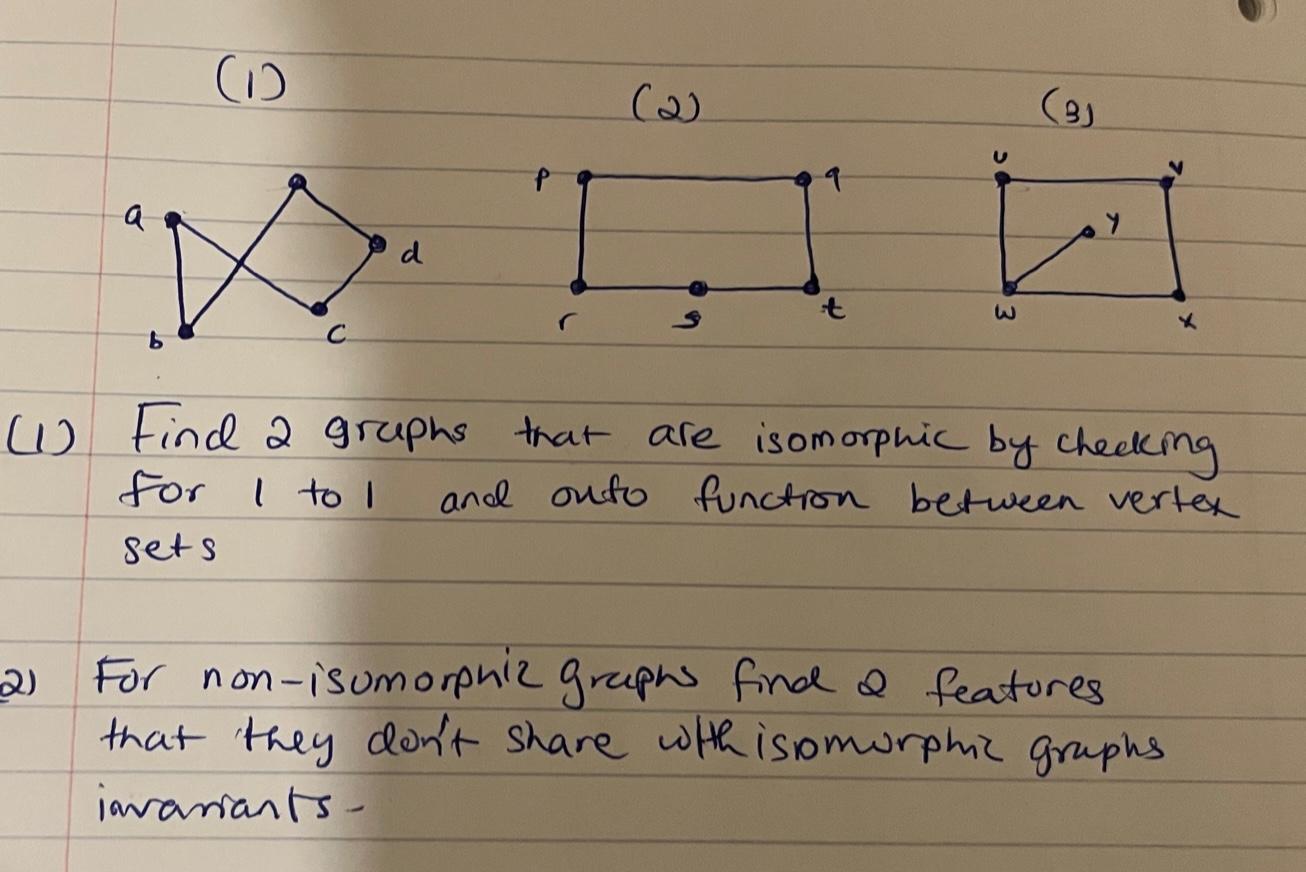 (1) (2) (3)
u v
p q
a y
d
r s t w x
b c
(1) Find 2 graphs that are isomorphic by checking
for 1 to 1 and onto function between vertex
sets
2) For non-isomorphic graphs find 2 features
that they don't share with isomorphic graphs
invariants-